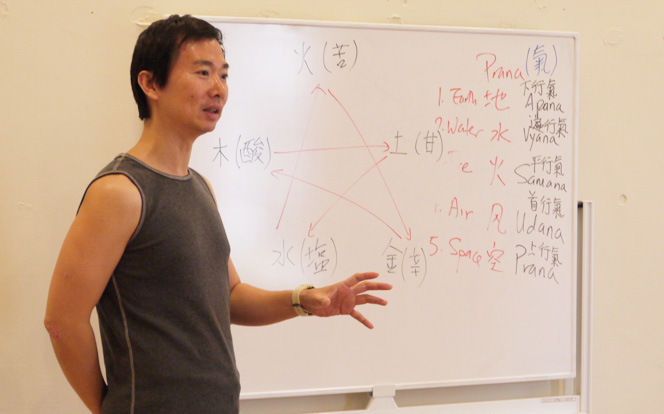 火(苦)
木(酸)
土(甘)
水(塩)
金(辛)
Prana(氣)
1. Earth 地 下行氣 Apana
2. Water 水 遍行氣 Vyana
e 火 平行氣 Samana
Air 風 首行氣 Udana
5. Space 空 上行氣 Prana